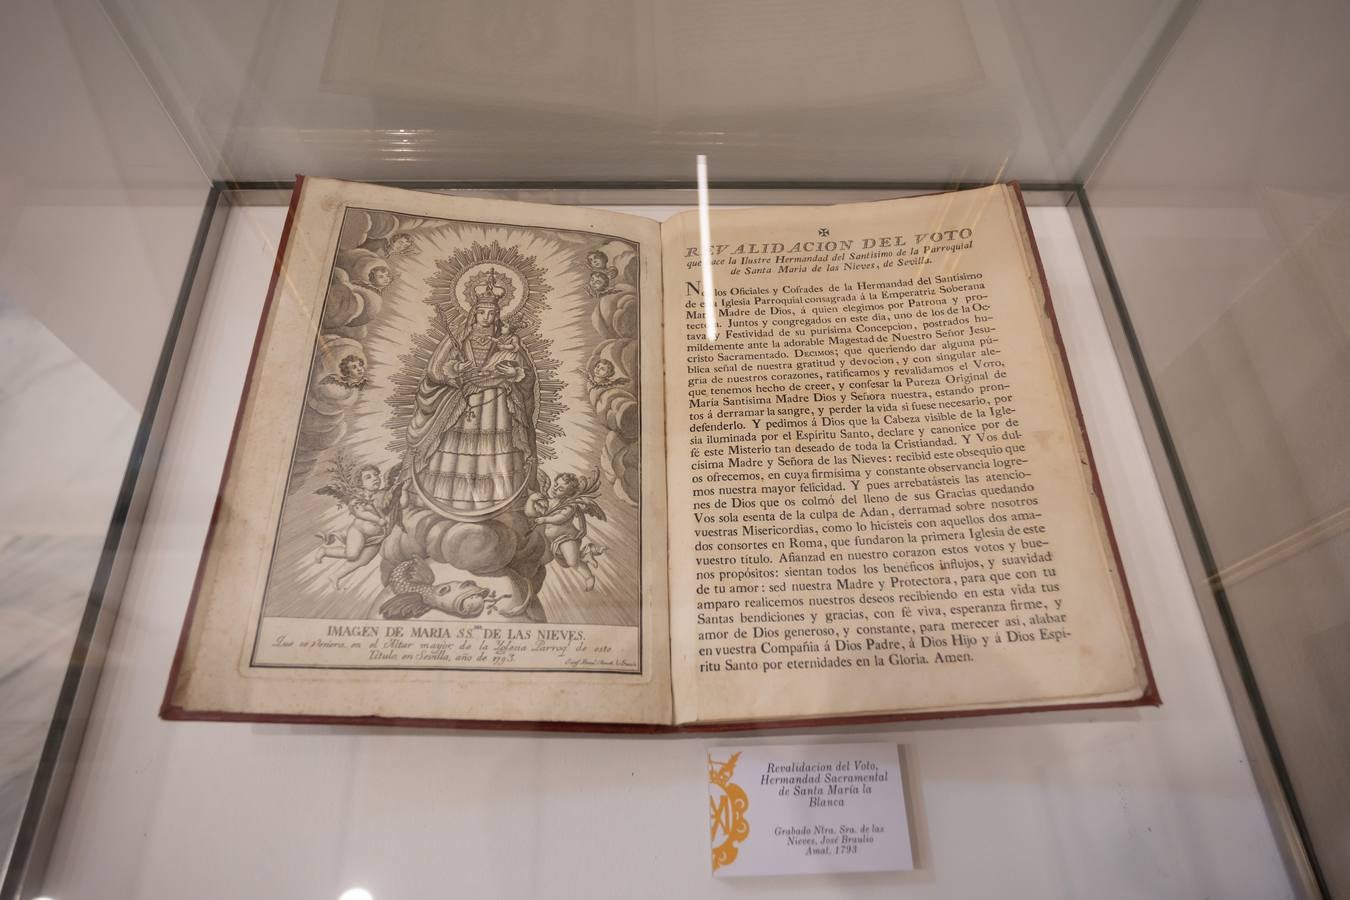 IMAGEN DE MARIA SS.ma DE LAS NIEVES.
Que se Venera, en el Altar mayor, de la Yglesia Parroq.l de este
Titulo, en Sevilla, año de 1793.
✠
REVALIDACION DEL VOTO
que hace la Ilustre Hermandad del Santísimo de la Parroquial
de Santa Maria de las Nieves, de Sevilla.
Nos los Oficiales y Cofrades de la Hermandad del Santísimo
de esta Iglesia Parroquial consagrada á la Emperatriz Soberana
María Madre de Dios, á quien elegimos por Patrona y pro-
tectora. Juntos y congregados en este dia, uno de los de la Oc-
tava y Festividad de su purísima Concepcion, postrados hu-
mildemente ante la adorable Magestad de Nuestro Señor Jesu-
cristo Sacramentado. Decimos; que queriendo dar alguna pú-
blica señal de nuestra gratitud y devocion, y con singular ale-
gria de nuestros corazones, ratificamos y revalidamos el Voto,
que tenemos hecho de creer, y confesar la Pureza Original de
María Santisima Madre Dios y Señora nuestra, estando pron-
tos á derramar la sangre, y perder la vida si fuese necesario, por
defenderlo. Y pedimos á Dios que la Cabeza visible de la Igle-
sia iluminada por el Espíritu Santo, declare y canonice por de
fé este Misterio tan deseado de toda la Cristiandad. Y Vos dul-
císima Madre y Señora de las Nieves: recibid este obsequio que
os ofrecemos, en cuya firmísima y constante observancia logre-
mos nuestra mayor felicidad. Y pues arrebatásteis las atencio-
nes de Dios que os colmó del lleno de sus Gracias quedando
Vos sola esenta de la culpa de Adan, derramad sobre nosotros
vuestras Misericordias, como lo hicísteis con aquellos dos ama-
dos consortes en Roma, que fundaron la primera Iglesia de este
vuestro título. Afianzad en nuestro corazon estos votos y bue-
nos propósitos: sientan todos los benéficos influjos, y suavidad
de tu amor: sed nuestra Madre y Protectora, para que con tu
amparo realicemos nuestros deseos recibiendo en esta vida tus
Santas bendiciones y gracias, con fé viva, esperanza firme, y
amor de Dios generoso, y constante, para merecer asi, alabar
en vuestra Compañia á Dios Padre, á Dios Hijo y á Dios Espí-
ritu Santo por eternidades en la Gloria. Amen.
Revalidacion del Voto,
Hermandad Sacramental
de Santa María la
Blanca
Grabado Ntra. Sra. de las
Nieves, José Braulio
Amat, 1793